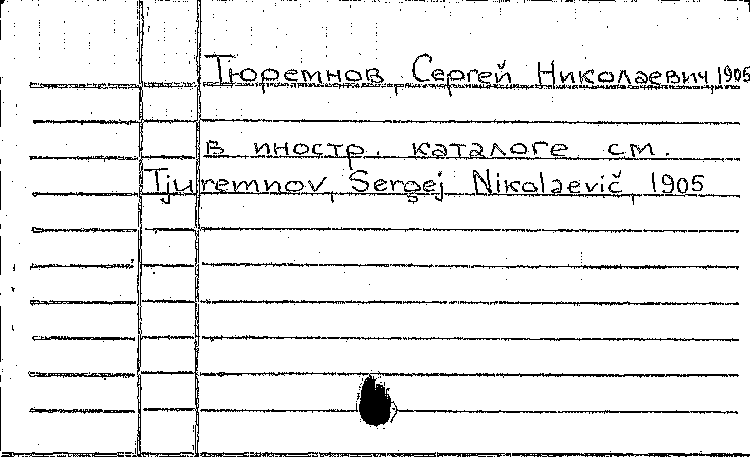 Тюремнов, Сергей Николаевич, 1905
в иностр. каталоге см.
Tjuremnov, Sergej Nikolaevič, 1905